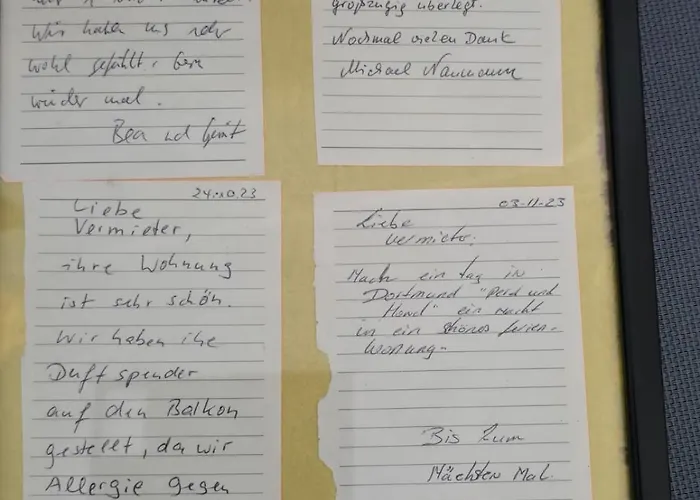 Wir haben uns sehr
wohl gefühlt, gern
wieder mal.
Bea und Gerit
großzügig überlegt.
Nochmal vielen Dank
Michael Naumann
24.10.23
Liebe
Vermieter,
ihre Wohnung
ist sehr schön.
Wir haben ihe
Duftspender
auf den Balkon
gestellt, da wir
Allergie gegen
03-11-23
Liebe
Vermietr.
Nach ein tag in
Dortmund "Perd und
Hond" ein nacht
in ein shönes ferien-
Wonung"
Bis Zum
Nächsten Mal.